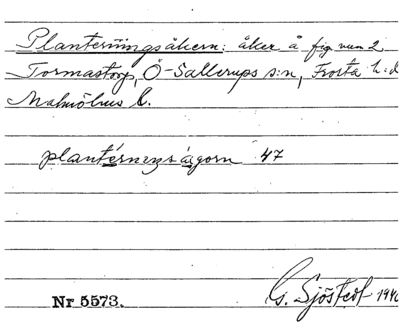 Planteringsåkern: åker å fig num 2
Tormastorp, Ö-Sallerups s:n, Frosta h:d
Malmöhus l.
plantérnengsågorn 47
Nr 5573.
G. Sjöstedt 1946